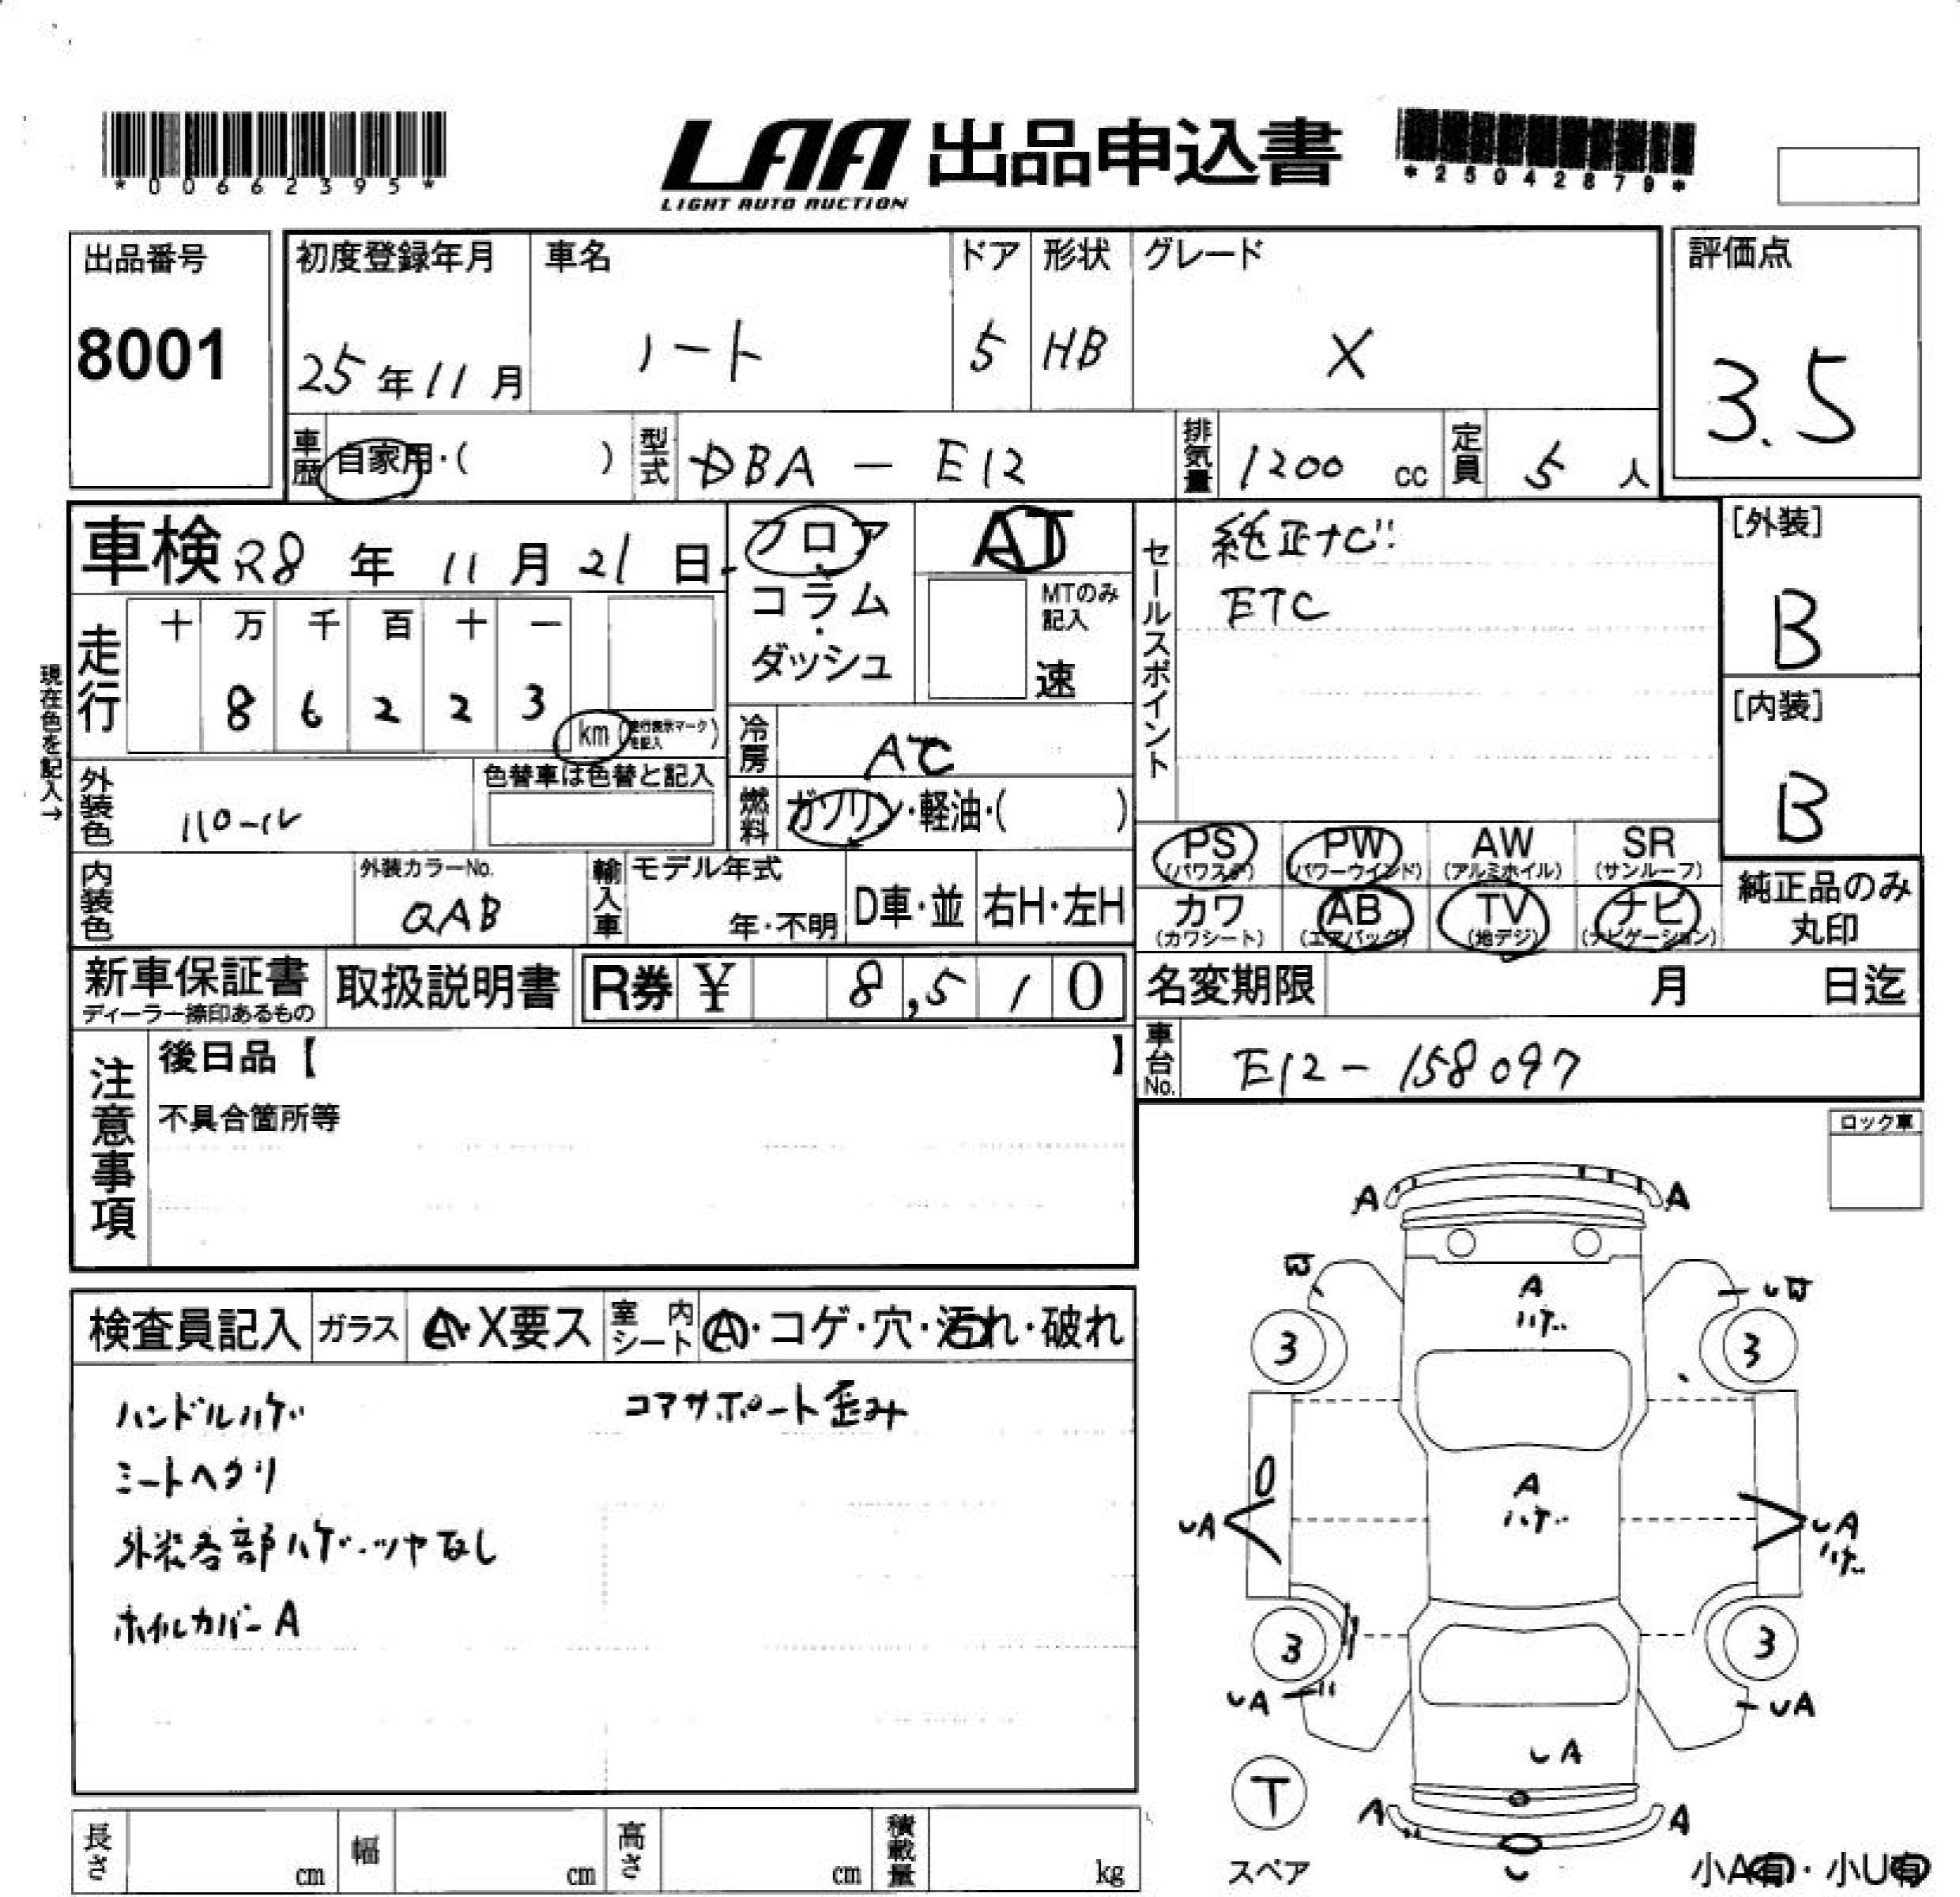 *00662395*
LAA 出品申込書
LIGHT AUTO AUCTION
*25042879*
出品番号
8001
初度登録年月
25年11月
車名
ノート
ドア
5
形状
HB
グレード
X
評価点
3.5
車歴
自家用・( )
型式
DBA - E12
排気量
1200 cc
定員
5 人
車検 R8 年 11 月 21 日
フロア・コラム・ダッシュ
AT
MTのみ記入
速
セールスポイント
純正ナビ
ETC
[外装]
B
[内装]
B
現在色を記入→
走行
十 万 千 百 十 一
8 6 2 2 3
km (走行表示マークを記入)
冷房
AC
燃料
ガソリン・軽油・( )
外装色
パール
色替車は色替と記入
PS (パワステ)
PW (パワーウインド)
AW (アルミホイル)
SR (サンルーフ)
カワ (カワシート)
AB (エアバッグ)
TV (地デジ)
ナビ (ナビゲーション)
純正品のみ丸印
内装色
外装カラーNo.
QAB
輸入車
モデル年式
年・不明
D車・並
右H・左H
新車保証書
ディーラー捺印あるもの
取扱説明書
R券 ¥ 8,510
名変期限 月 日迄
車台No.
E12 - 158097
注意事項
後日品【 】
不具合箇所等
ロック車
検査員記入
ガラス
A・X要ス
室内シート
A・コゲ・穴・汚れ・破れ
ハンドルハゲ
コアサポート歪み
シートヘタリ
外装各部ハゲ・ツヤなし
ホイルカバーA
A A
A
ハゲ
3 3
A
ハゲ
UA UA
ハゲ
3 3
UA UA
UA
T
スペア
A A
U
小A有・小U有
長さ cm
幅 cm
高さ cm
積載量 kg